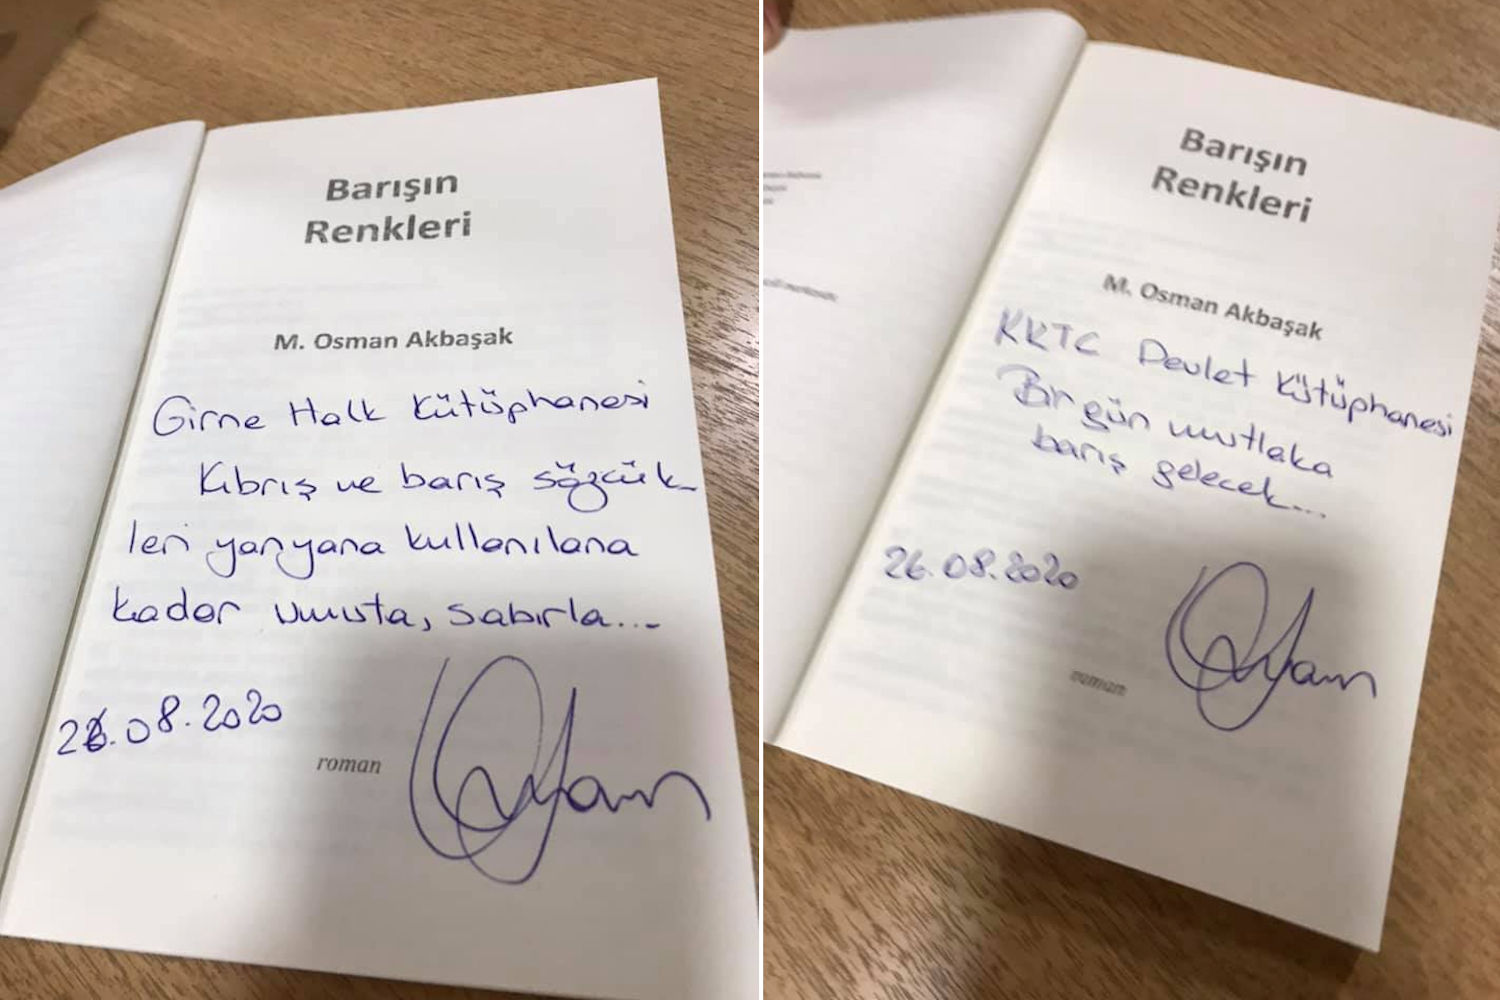 Barışın
Renkleri
M. Osman Akbaşak
Girne Halk Kütüphanesi
Kıbrış ve barış sözcük-
leri yanyana kullanılana
kadar umutla, sabırla...
26.08.2020
roman
Barışın
Renkleri
M. Osman Akbaşak
KKTC Devlet Kütüphanesi
Bir gün mutlaka
barış gelecek...
26.08.2020
roman